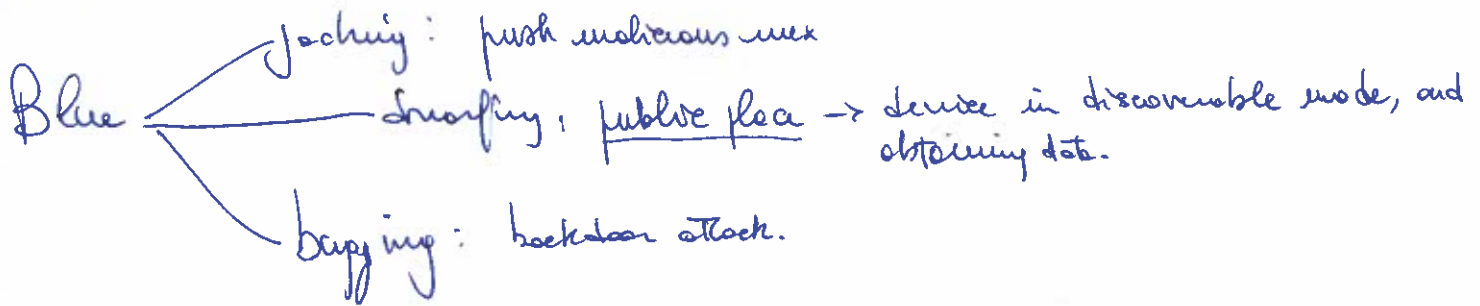 jacking: push malicious mex
Blue
snarfing, public place -> device in discoverable mode, and
obtaining data.
bugging: backdoor attack.